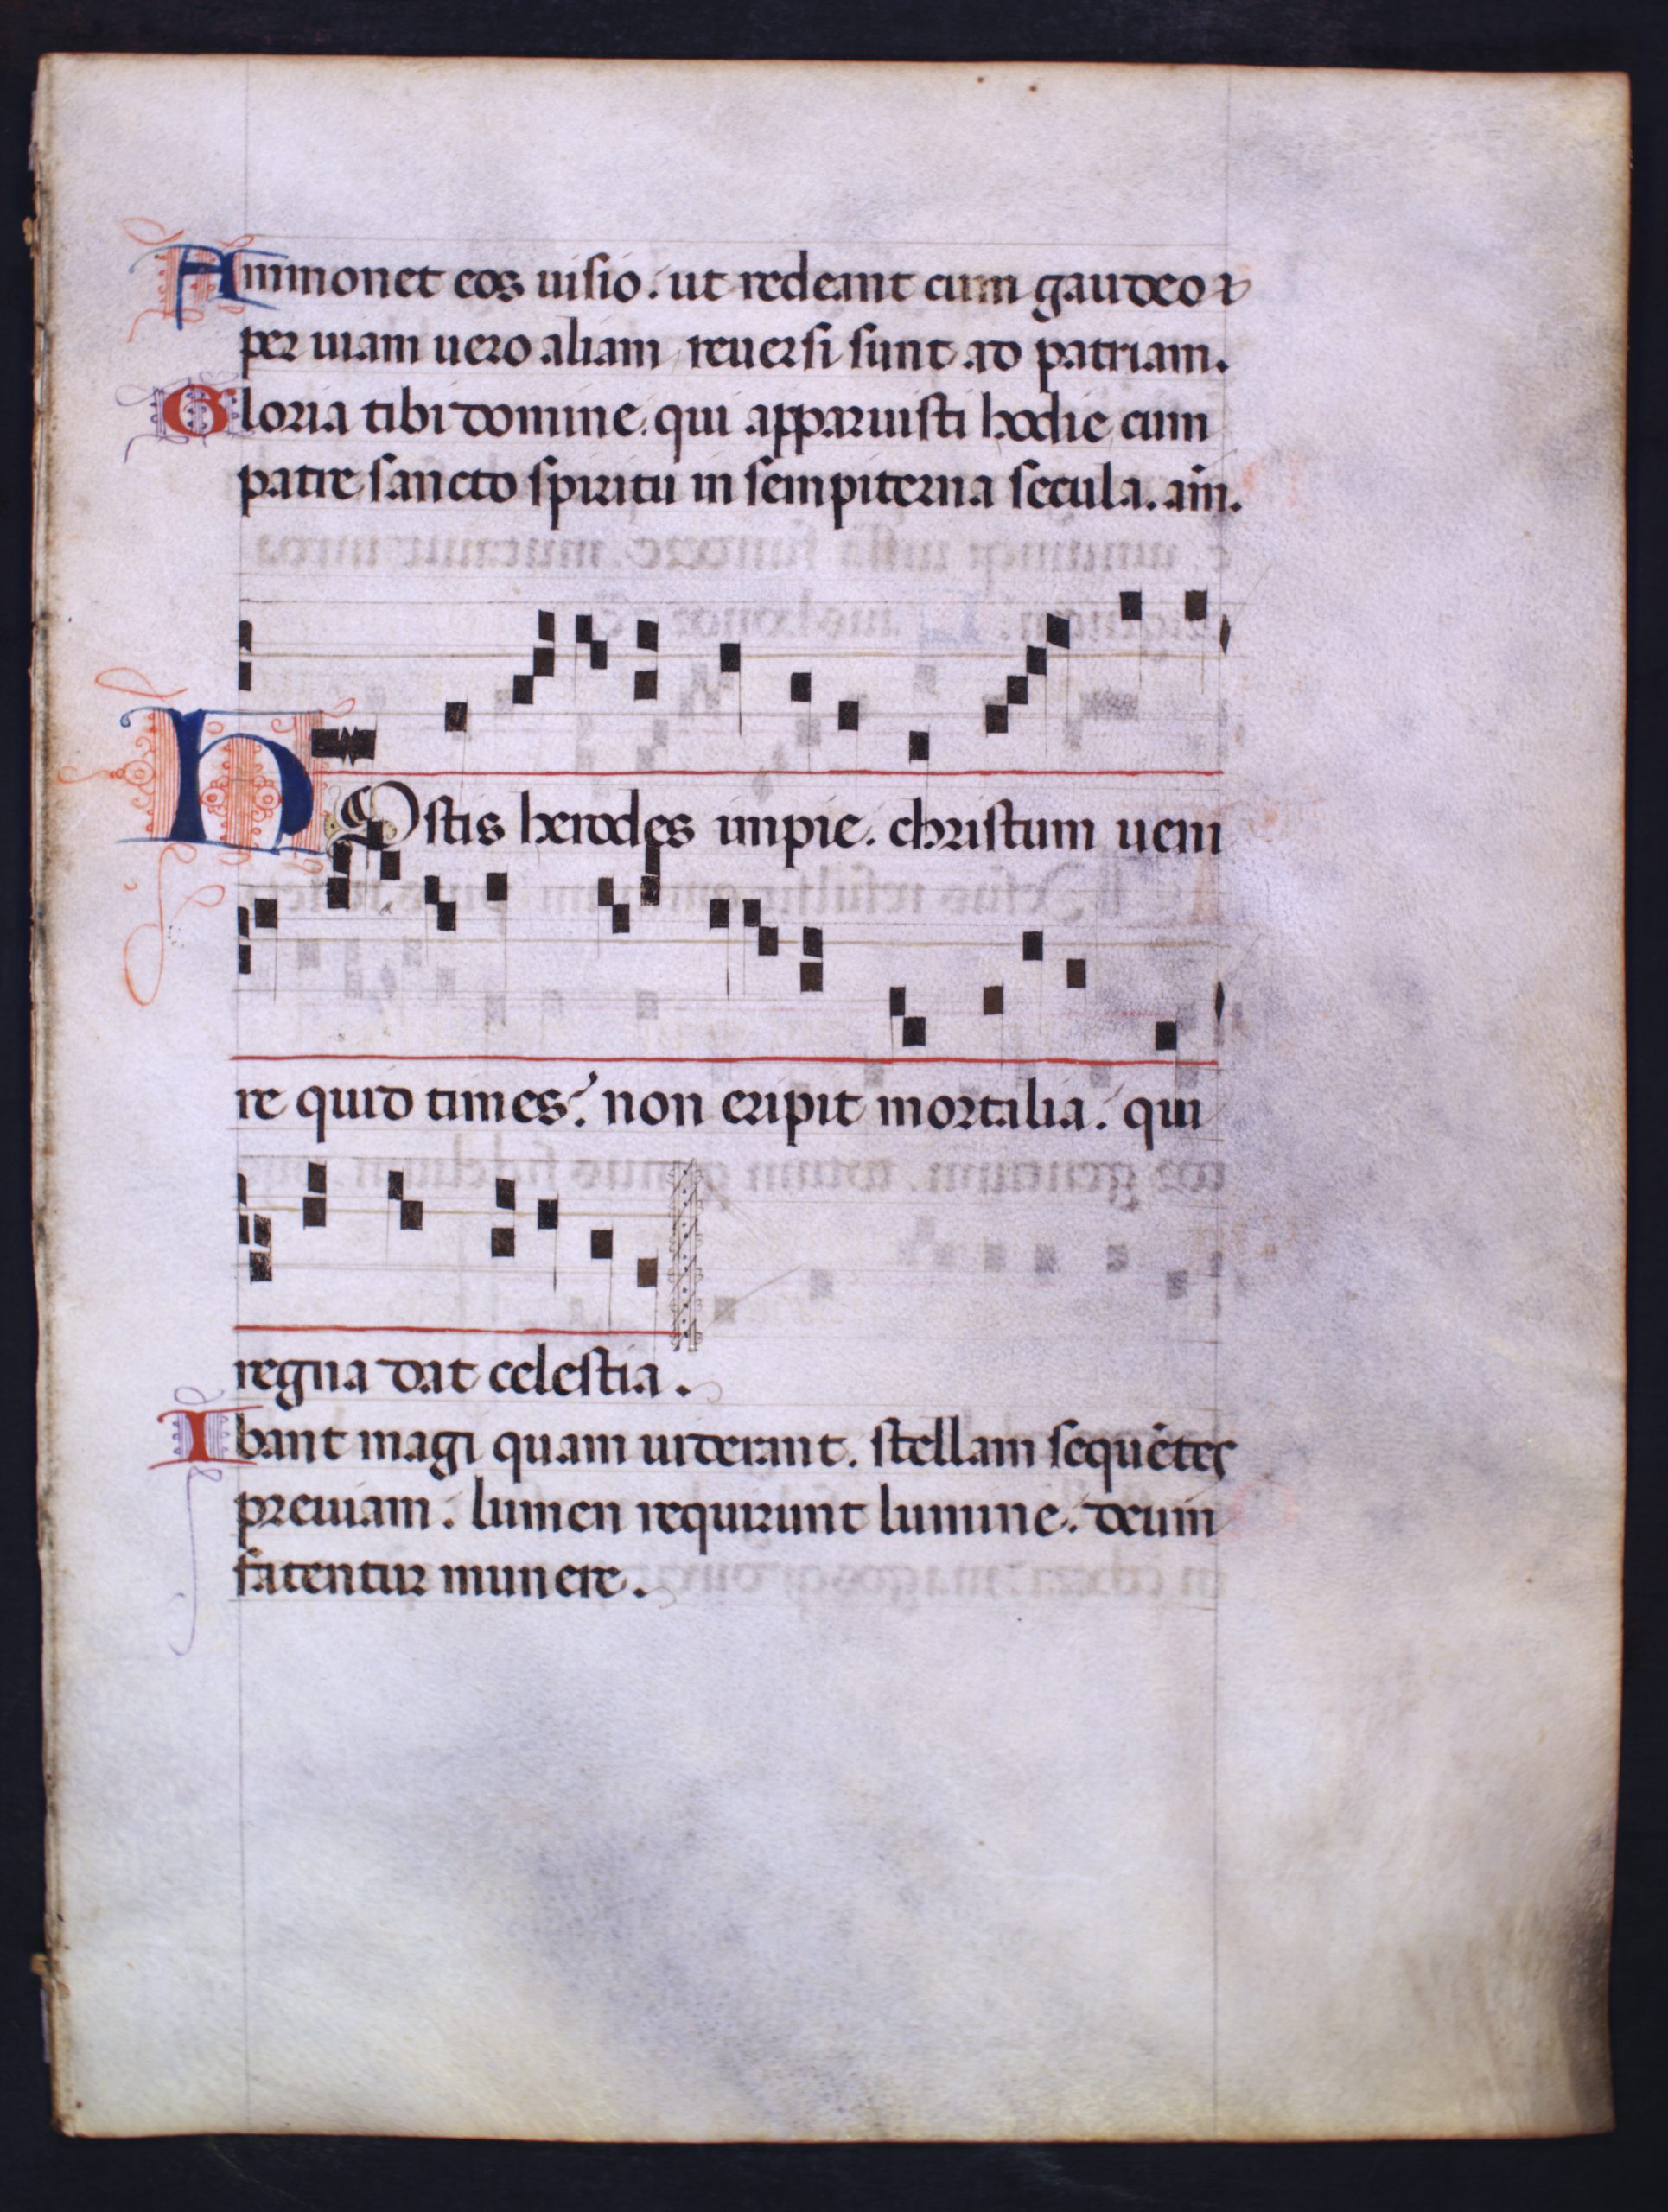 Ammonet eos uisio. ut redeant cum gaudeo &
per uiam uero aliam reuersi sunt ad patriam.
Gloria tibi domine. qui apparuisti hodie cum
patre sancto spiritu in sempiterna secula. am̄.
HOstis herodes impie. christum ueni
re quid times? non eripit mortalia. qui
regna dat celestia.
Ibant magi quam uiderant. stellam sequētes
preuiam. lumen requirunt lumine. deum
fatentur munere.